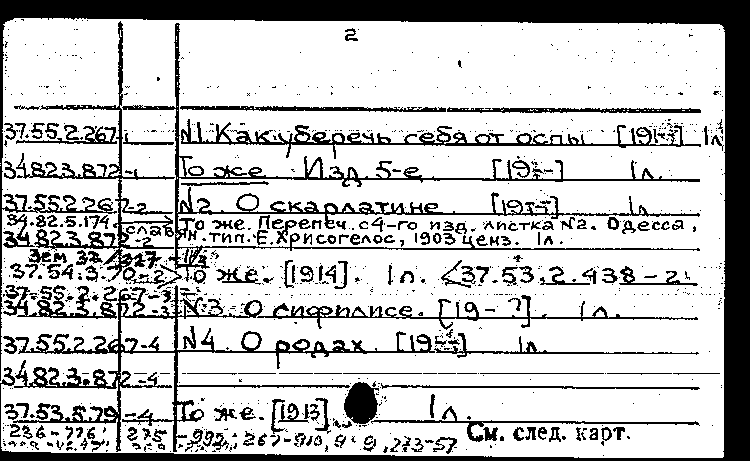 2
37.55.2.267-1 №1. Как уберечь себя от оспы. [19--] 1л
34.82.3.872-1 То же. Изд. 5-е [19--] 1л.
37.55.2.267-2 №2. О скарлатине. [19--] 1л
34.82.5.174 То же. Перепеч. с 4-го изд. листка №2. Одесса,
34.82.3.872-2 слав тип. Е. Хрисогелос, 1903 ценз. 1л.
37.54.3.70-2 То же. [1914]. 1л. <37.53.2.438-2
37.55.2.267-3
34.82.3.872-3 №3. О сифилисе. [19-?]. 1л.
37.55.2.267-4 №4. О родах. [19--] 1л.
34.82.3.872-4
37.53.5.79-4 То же. [1913] 1л.
236-776 275-992; 267-910, 273-57 См. след. карт.